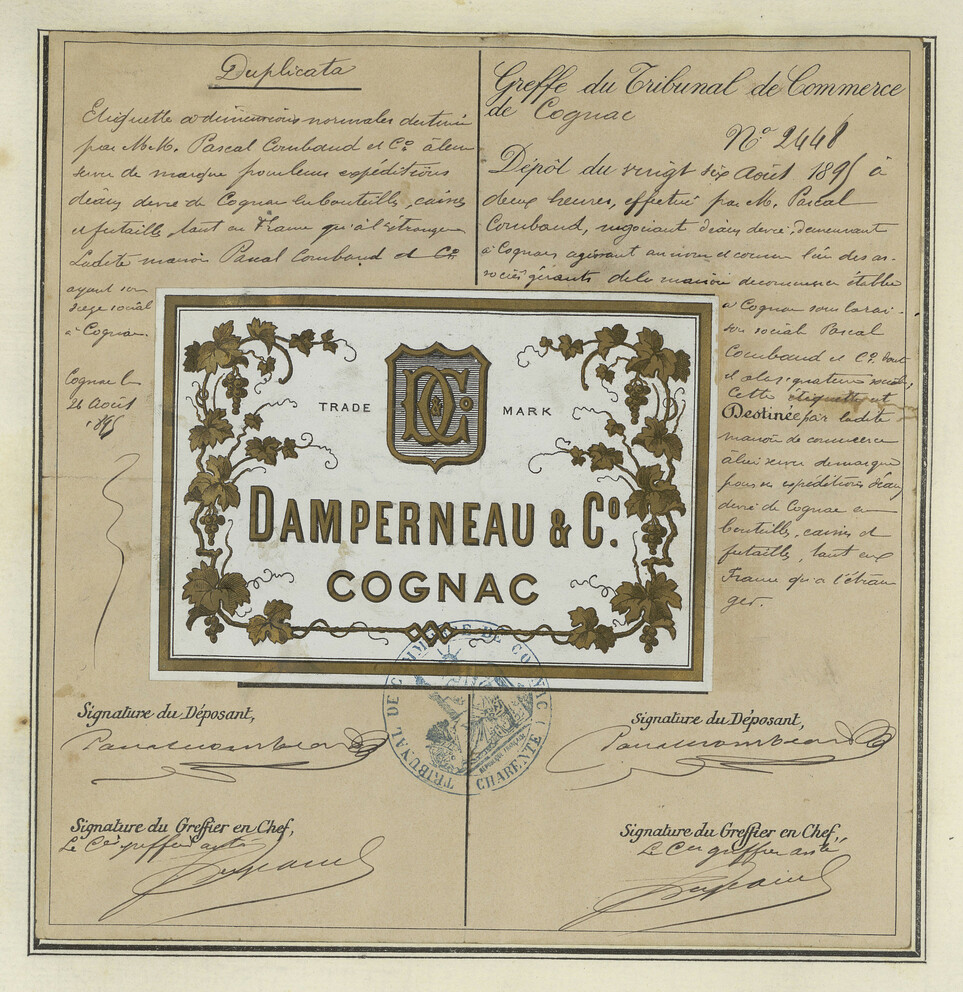 Duplicata
Etiquette de dimensions normales destinée
par M.M. Pascal Combaud et Co. à leur
servir de marque pour leurs expéditions
d'eaux de vie de Cognac en bouteilles, caisses
et futailles, tant en France qu'à l'étranger
Ladite maison Pascal Combaud et Co.
ayant son
siège social
à Cognac.
Cognac le
26 Août
1895
Greffe du Tribunal de Commerce
de Cognac
No. 2448
Dépôt du vingt six Août 1895 à
deux heures, effectué par M. Pascal
Combaud, négociant d'eaux de vie, demeurant
à Cognac agissant au nom et comme l'un des as-
sociés gérants de la maison de commerce établie
à Cognac sous la rai-
son sociale Pascal
Combaud et Co. dont
il a la signature sociale,
Cette étiquette est
Destinée par ladite
maison de commerce
à lui servir de marque
pour ses expéditions d'eaux
de vie de Cognac en
bouteilles, caisses et
futailles, tant en
France qu'à l'étran-
ger.
TRADE MARK
DCo
DAMPERNEAU & Co.
COGNAC
TRIBUNAL DE COMMERCE DE COGNAC
CHARENTE
REPUBLIQUE FRANÇAISE
Signature du Déposant,
Pascal Combaud & Co
Signature du Déposant,
Pascal Combaud & Co
Signature du Greffier en Chef,
Le Cis greffier asste
Signature du Greffier en Chef,
Le Cis greffier assté